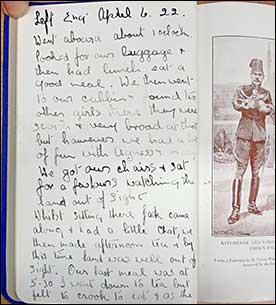 Left Eng' April 6. 22.
Went aboard about 1 oclock.
Looked for our luggage &
then had lunch eat a
good meal. We then went
to our cabbin and to
other girls there they were
Scotch & very broad at that
but however we had a lot
of fun with Agness
We got our chairs & sat
for a few hours watching the
land out of sight
Whilst sitting there Jak came
along & had a little chat, we
then made afternoon tea & by
this time land was well out of
sight. Our last meal was at
5.30 I went down to tea but
felt to crook to eat & as the
KITCHENER